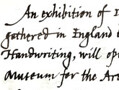 An exhibition of
gathered in England
Handwriting, will op
Museum for the Ar